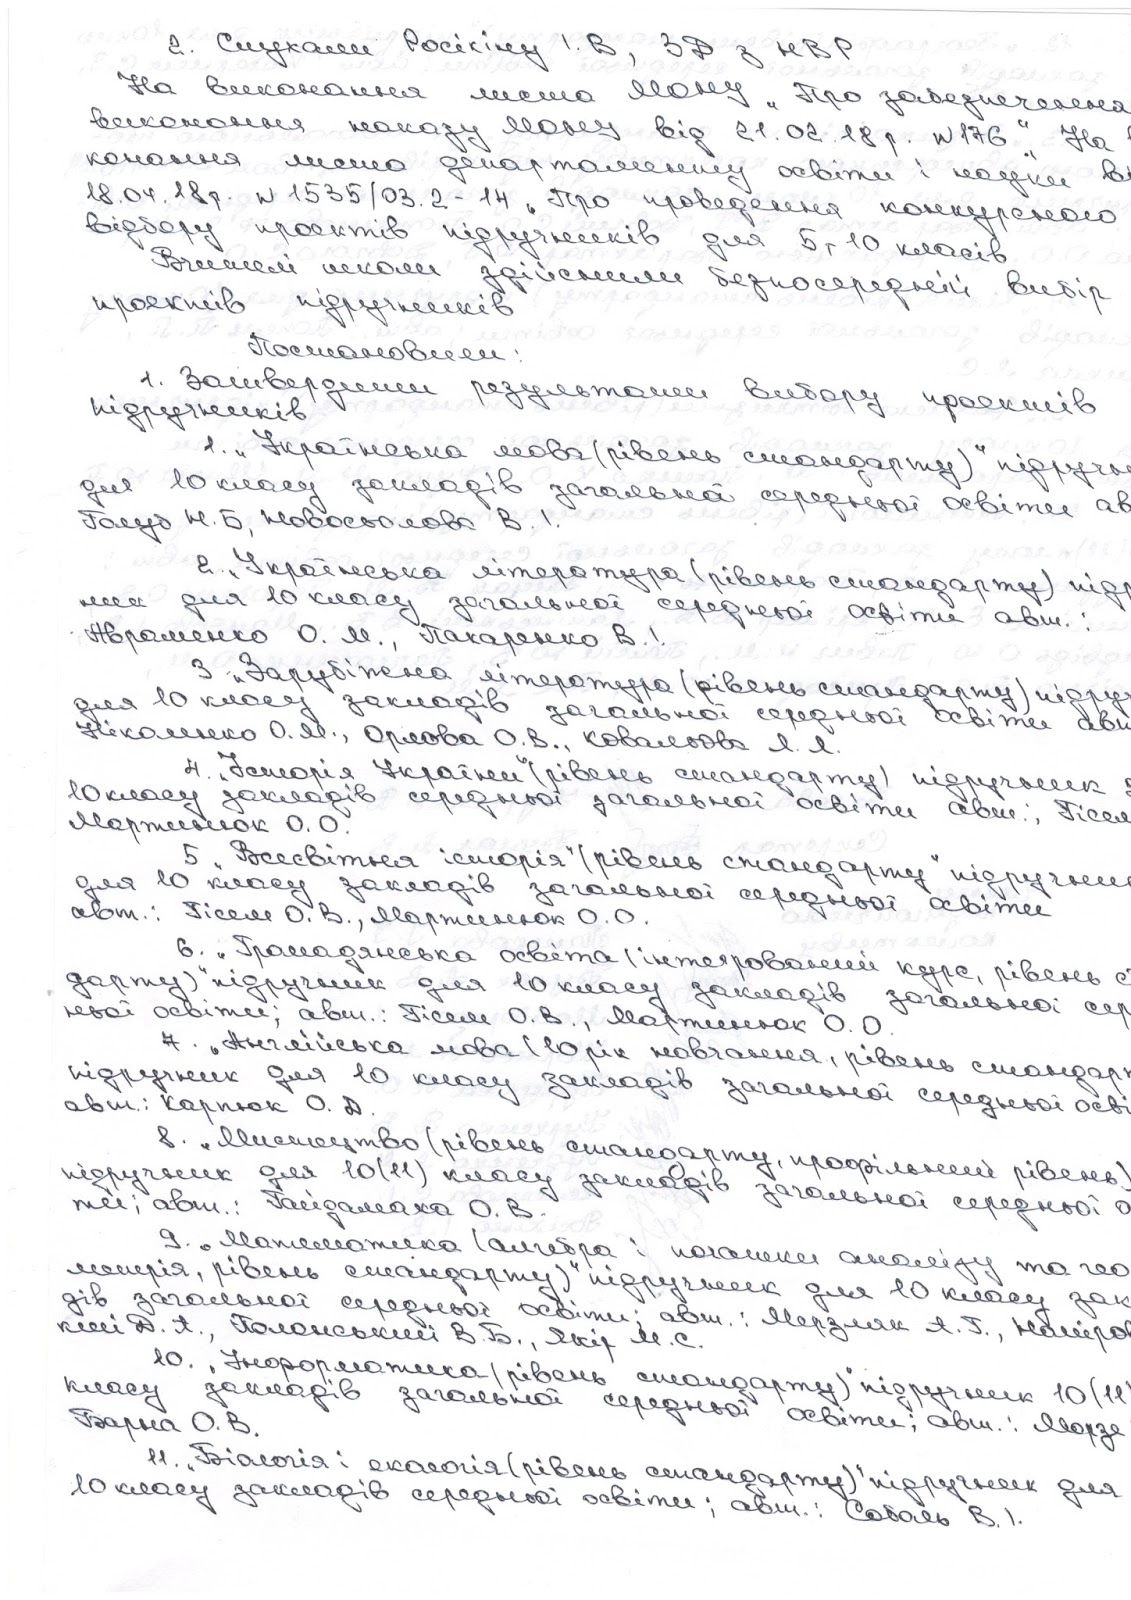 2. Слухали Росікіну І.В, ЗД з НВР
На виконання листа МОНУ „Про забезпечення
виконання наказу МОНУ від 21.02.18р. №176" На
конання листа департаменту освіти і науки
18.04.18р. №1535/03.2-14 „Про проведення конкурсного
відбору проєктів підручників для 5, 10 класів
Вчителі школи здійснили безпосередній вибір
проектів підручників
Постановили:
1. Затвердити результати вибору проектів
підручників
1. „Українська мова (рівень стандарту)" підручн
для 10 класу закладів загальної середньої освіти ав
Голуб Н.Б, Новосьолова В.І.
2. „Українська література (рівень стандарту) підр
ник для 10 класу загальної середньої освіти авт.:
Авраменко О.М., Пахаренко В.І.
3 „Зарубіжна література (рівень стандарту) підруч
для 10 класу закладів загальної середньої освіти авт
Ніколенко О.М., Орлова О.В., Ковальова Л.Л.
4. „Історія України" (рівень стандарту) підручник
10 класу закладів середньої загальної освіти авт.; Гісем
Мартинюк О.О.
5 „Всесвітня історія" (рівень стандарту" підручник
для 10 класу закладів загальної середньої освіти
авт.: Гісем О.В., Мартинюк О.О.
6. „Громадянська освіта (інтегрований курс, рівень с
дарту)" підручник для 10 класу закладів загальної сер
ньої освіти; авт.: Гісем О.В., Мартинюк О.О.
7. „Англійська мова (10 рік навчання, рівень стандар
підручник для 10 класу закладів загальної середньої осві
авт.: Карпюк О.Д.
8. „Мистецтво (рівень стандарту, профільний рівень)
підручник для 10(11) класу закладів загальної середньої о
ти; авт.: Гайдамака О.В.
9. „Математика (алгебра і початки аналізу та гео
метрія, рівень стандарту)" підручник для 10 класу зак
дів загальної середньої освіти; авт.: Мерзляк А.Г., Номіров
кий Д.А., Полонський В.Б., Якір М.С.
10. „Інформатика (рівень стандарту)" підручник 10(11)
класу закладів загальної середньої освіти; авт.: Морзе
Барна О.В.
11. „Біологія і екологія (рівень стандарту)" підручник для
10 класу закладів середньої освіти; авт.: Соболь В.І.